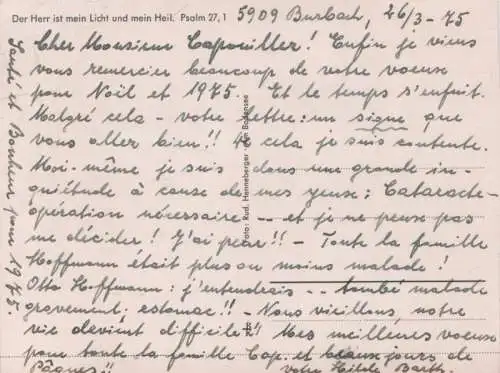 Der Herr ist mein Licht und mein Heil. Psalm 27,1
5909 Burbach, 26/3-75
Cher Monsieur Capouiller! Enfin je viens
vous remercier beaucoup de votre voeuse
pour Noël et 1975. Et le temps s'enfuit.
Malgré cela - votre lettre: un signe que
vous aller bien!! De cela je suis contente.
Moi-même je suis dans une grande in-
quiétude à cause de mes yeuse: Cataracte-
opération nécessaire -- et je ne peuse pas
me décider! J'ai peur!! - Toute la famille
Hoffmann était plus ou moins malade!
Otto Hoffmann: j'entendrais -- tombé malade
gravement; estomac!! - Nous vieillons, notre
vie devient difficile!! Mes meilleures voeuse
pour toute la famille Cap. et beaux jours de
Pâques!! votre Hilde Barth.
Santé et Bonheur pour 1975.
Foto: Rud. Henneberger